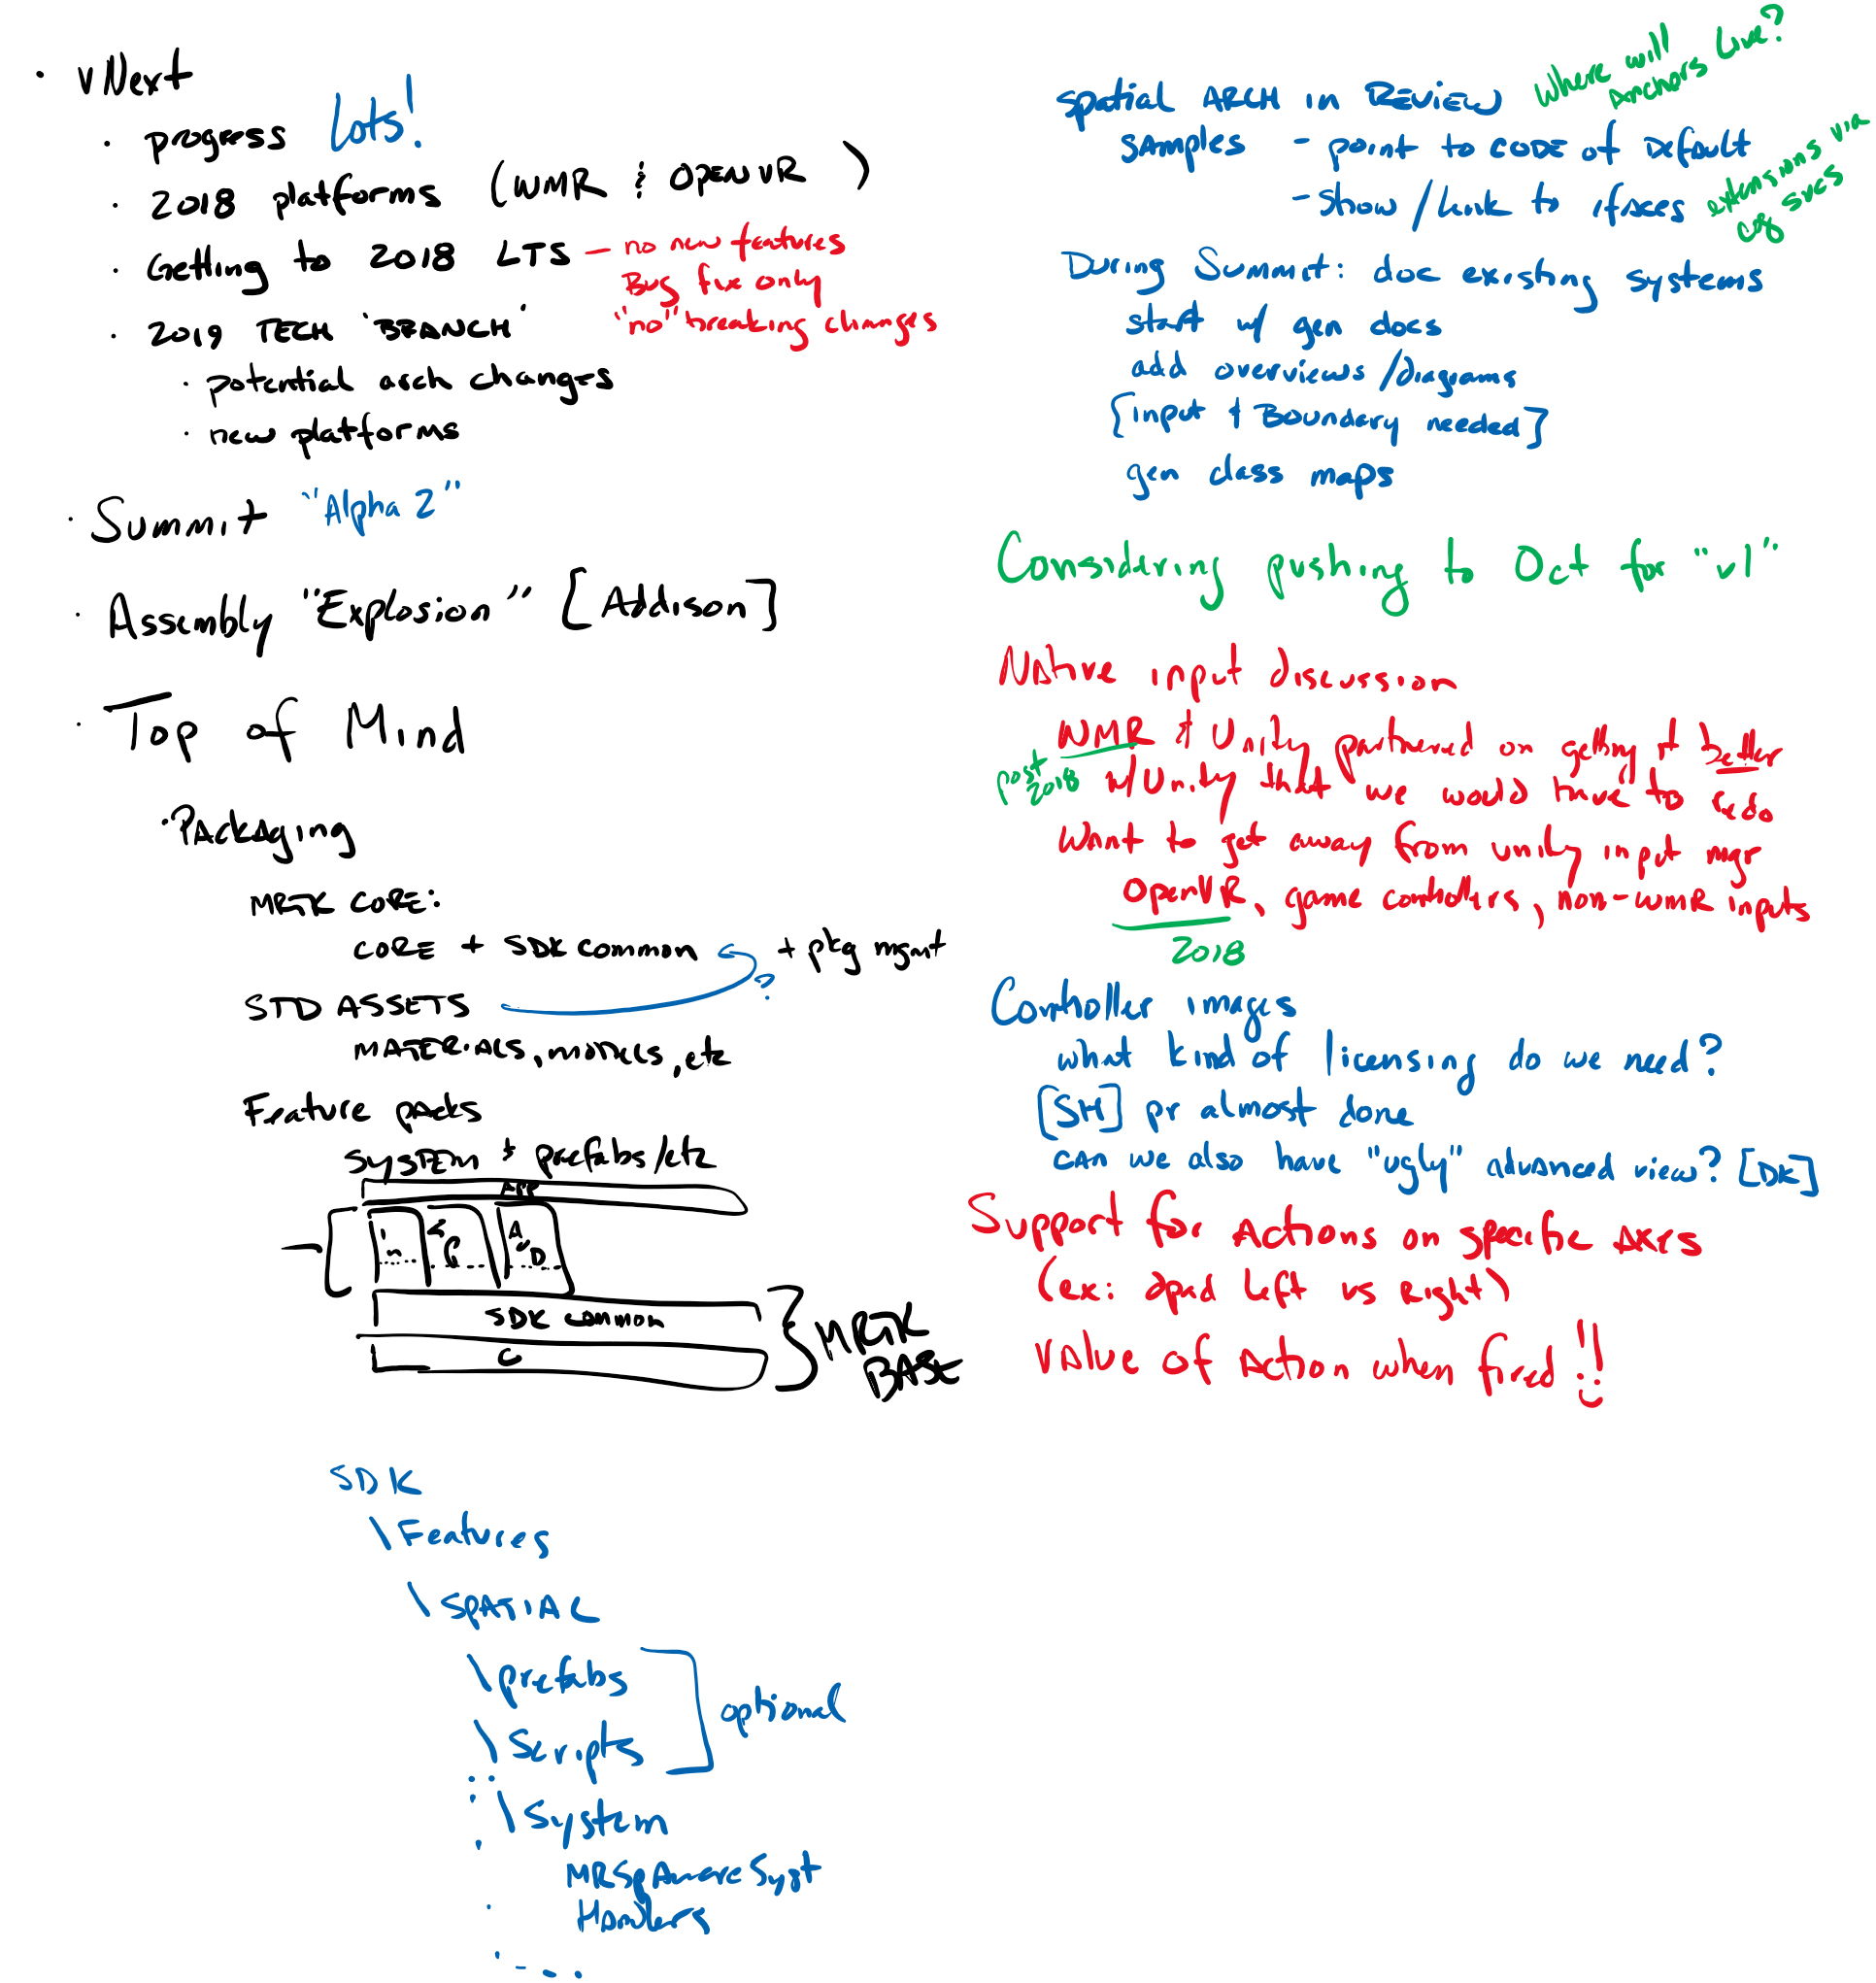 · vNext
· progress Lots!
· 2018 platforms (WMR & OPENVR)
· Getting to 2018 LTS – no new features
Bug fix only
"no" breaking changes
· 2019 TECH 'BRANCH'
· potential arch changes
· new platforms
· Summit "Alpha 2"
· Assembly "Explosion" [Addison]
· Top of Mind
· Packaging
MRTK CORE:
CORE + SDK common + pkg mgmt
?
STD ASSETS
MATERIALS, models, etc
Feature packs
SYSTEM + prefabs/etc
APP
In
SP
AUD
SDK common
C
MRTK
BASE
SDK
\Features
\SPATIAL
\prefabs
\Scripts
optional
\System
MRSpAwareSyst
Handlers
Spatial ARCH in REVIEW
Where will
Anchors Live?
Samples – point to CODE of Default
– show/link to ifaces
extensions via
cfg svcs
During Summit: doc existing systems
start w/ gen docs
add overviews/diagrams
[input & Boundary needed]
gen class maps
Considering pushing to Oct for "v1"
Native input discussion
WMR & Unity partnered on getting it better
post
2018
w/Unity that we would have to redo
Want to get away from unity input mgr
OpenVR, game controllers, non-WMR inputs
2018
Controller images
what kind of licensing do we need?
[SH] pr almost done
can we also have "ugly" advanced view? [DK]
Support for Actions on specific axes
(ex: dpad left vs right)
Value of action when fired !!